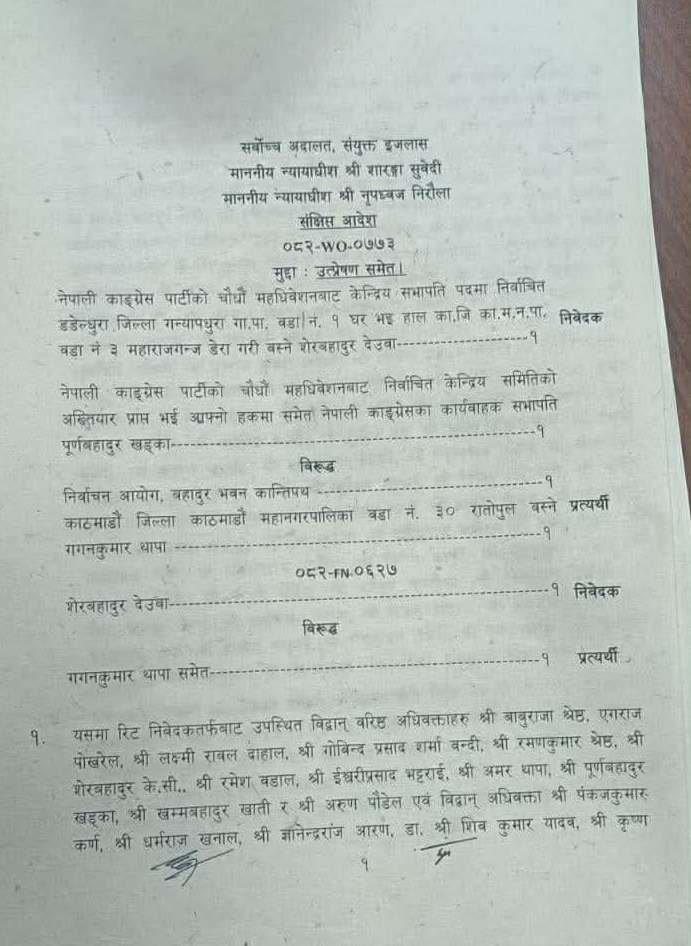 सर्वोच्च अदालत, संयुक्त इजलास
माननीय न्यायाधीश श्री शारङ्गा सुवेदी
माननीय न्यायाधीश श्री नृपध्वज निरौला
संक्षिप्त आदेश
०८२-WO-०७७३
मुद्दा : उत्प्रेषण समेत।
नेपाली काङ्ग्रेस पार्टीको चौधौं महधिवेशनबाट केन्द्रिय सभापति पदमा निर्वाचित
डडेल्धुरा जिल्ला गन्यापधुरा गा.पा. वडा नं. १ घर भइ हाल का.जि का.म.न.पा. निवेदक
वडा नं ३ महाराजगन्ज डेरा गरी बस्ने शेरबहादुर देउवा---------------------१
नेपाली काङ्ग्रेस पार्टीको चौधौं महधिवेशनबाट निर्वाचित केन्द्रिय समितिको
अख्तियार प्राप्त भई आफ्नो हकमा समेत नेपाली काङ्ग्रेसका कार्यवाहक सभापति
पूर्णबहादुर खड्का---------------------१
विरूद्ध
निर्वाचन आयोग, बहादुर भवन कान्तिपथ ---------------------१
काठमाडौं जिल्ला काठमाडौं महानगरपालिका वडा नं. ३० रातोपुल बस्ने प्रत्यर्थी
गगनकुमार थापा ---------------------१
०८२-FN-०६२७
शेरबहादुर देउवा---------------------१ निवेदक
विरूद्ध
गगनकुमार थापा समेत---------------------१ प्रत्यर्थी
१. यसमा रिट निवेदकतर्फबाट उपस्थित विद्वान् वरिष्ठ अधिवक्ताहरु श्री बाबुराजा श्रेष्ठ, एगराज
पोखरेल, श्री लक्ष्मी रावल दाहाल, श्री गोविन्द प्रसाद शर्मा बन्दी, श्री रमणकुमार श्रेष्ठ, श्री
शेरबहादुर के.सी., श्री रमेश बडाल, श्री ईश्वरीप्रसाद भट्टराई, श्री अमर थापा, श्री पूर्णबहादुर
खड्का, श्री खम्मबहादुर खाती र श्री अरुण पौडेल एवं विद्वान् अधिवक्ता श्री पंकजकुमार
कर्ण, श्री धर्मराज खनाल, श्री ज्ञानेन्द्रराज आरण, डा. श्री शिव कुमार यादव, श्री कृष्ण
१